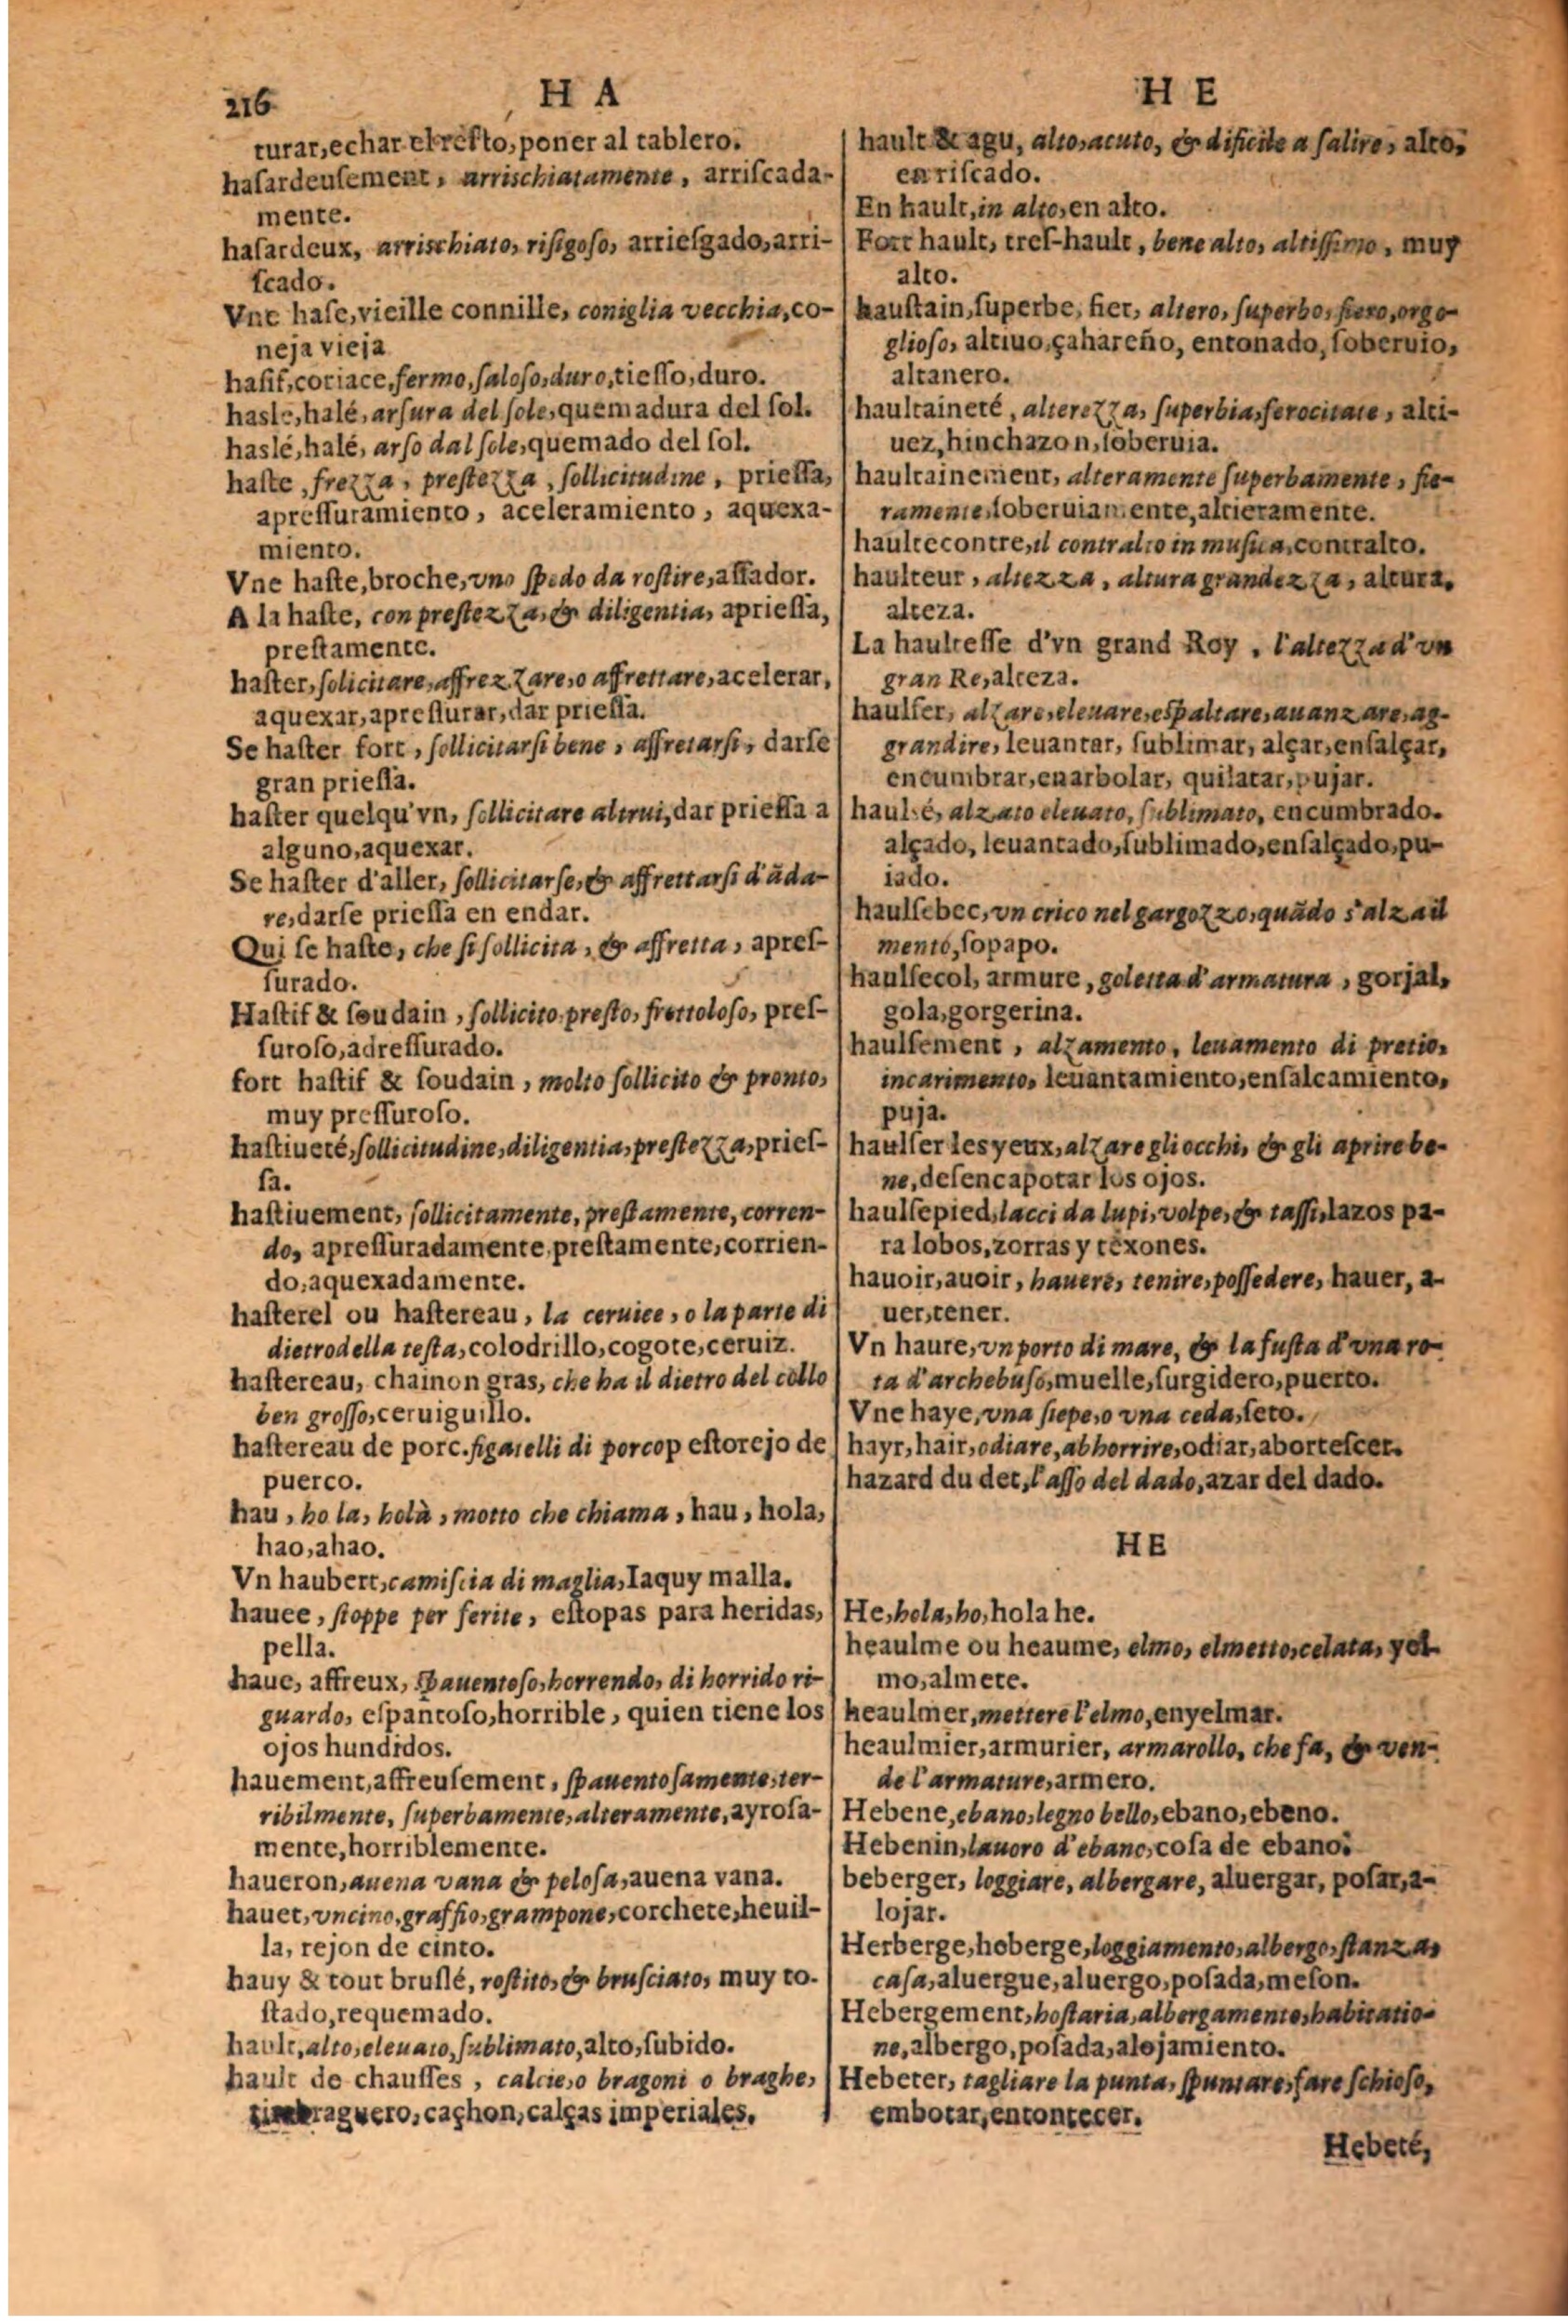 216
H A
turar,echar el resto,poner al tablero.
hasardeusement, arrischiatamente, arriscada-
mente.
hasardeux, arrischiato, risigoso, arriesgado,arri-
scado.
Vne hase,vieille connille, coniglia vecchia,co-
neja vieja
hasif,coriace,fermo,saloso,duro,tiesso,duro.
hasle,halé, arsura del sole,quemadura del sol.
haslé,halé, arso dal sole,quemado del sol.
haste, frezza, prestezza, sollicitudine, priessa,
apressuramiento, aceleramiento, aquexa-
miento.
Vne haste,broche,vno spedo da rostire,assador.
A la haste, con prestezza,& diligentia, apriessa,
prestamente.
haster,solicitare,affrezzare,o affrettare,acelerar,
aquexar,apressurar,dar priessa.
Se haster fort, sollicitarsi bene, affretarsi, darse
gran priessa.
haster quelqu'vn, sollicitare altrui,dar priessa a
alguno,aquexar.
Se haster d'aller, sollicitarse,& affrettarsi d'ãda-
re,darse priessa en endar.
Qui se haste, che si sollicita, & affretta, apres-
surado.
Hastif & soudain, sollicito,presto, frettoloso, pres-
suroso,adressurado.
fort hastif & soudain, molto sollicito & pronto,
muy pressuroso.
hastiueté,sollicitudine,diligentia,prestezza,pries-
sa.
hastiuement, sollicitamente, prestamente, corren-
do, apressuradamente,prestamente,corrien-
do,aquexadamente.
hasterel ou hastereau, la ceruice, o la parte di
dietrodella testa,colodrillo,cogote,ceruiz.
hastereau, chainon gras, che ha il dietro del collo
ben grosso,ceruiguillo.
hastereau de porc.figatelli di porcop estorejo de
puerco.
hau, ho la, holà, motto che chiama, hau, hola,
hao,ahao.
Vn haubert,camiscia di maglia,Iaquy malla.
hauee, stoppe per ferite, estopas para heridas,
pella.
haue, affreux, spauentoso,horrendo, di horrido ri-
guardo, espantoso,horrible, quien tiene los
ojos hundidos.
hauement,affreusement, spauentosamente,ter-
ribilmente, superbamente,alteramente,ayrosa-
mente,horriblemente.
haueron,auena vana & pelosa,auena vana.
hauet,vncino,graffio,grampone,corchete,heuil-
la, rejon de cinto.
hauy & tout bruslé, rostito,& brusciato, muy to-
stado,requemado.
hault,alto,eleuato,sublimato,alto,subido.
hault de chausses, calcie,o bragoni o braghe,
cachon,calças imperiales.
H E
hault & agu, alto,acuto, & dificile a salire, alto,
enriscado.
En hault,in alto,en alto.
Fort hault, tres-hault, bene alto, altissimo, muy
alto.
haustain,superbe, fier, altero, superbo, fiero,orgo-
glioso, altiuo,çahareño, entonado, soberuio,
altanero.
haultaineté, alterezza, superbia,ferocitate, alti-
uez,hinchazon,soberuia.
haultainement, alteramente superbamente, fie-
ramente,soberuiamente,altieramente.
haultecontre,il contralto in musica,contralto.
haulteur, altezza, altura grandezza, altura,
alteza.
La haultesse d'vn grand Roy, l'altezza d'vn
gran Re,alteza.
haulser, alzare,eleuare,espaltare,auanzare,ag-
grandire, leuantar, sublimar, alçar,ensalçar,
encumbrar,enarbolar, quilatar,pujar.
haulsé, alzato eleuato, sublimato, encumbrado.
alçado, leuantado,sublimado,ensalçado,pu-
iado.
haulsebec,vn crico nel gargozzo,quãdo s'alza il
mento,sopapo.
haulsecol, armure, goletta d'armatura, gorjal,
gola,gorgerina.
haulsement, alzamento, leuamento di pretio,
incarimento, leuantamiento,ensalcamiento,
puja.
haulser les yeux,alzare gli occhi, & gli aprire be-
ne,desencapotar los ojos.
haulsepied,lacci da lupi,volpe,& tassi,lazos pa-
ra lobos,zorras y texones.
hauoir,auoir, hauere, tenire,possedere, hauer, a-
uer,tener.
Vn haure,vn porto di mare, & la fusta d'vna ro-
ta d'archebuso,muelle,surgidero,puerto.
Vne haye,vna siepe,o vna ceda,seto.
hayr,hair,odiare,abhorrire,odiar,abortescer.
hazard du det,l'asso del dado,azar del dado.
HE
He,hola,ho,hola he.
heaulme ou heaume, elmo, elmetto,celata, yel-
mo,almete.
heaulmer,mettere l'elmo,enyelmar.
heaulmier,armurier, armarollo, che fa, & ven-
de l'armature,armero.
Hebene,ebano,legno bello,ebano,ebeno.
Hebenin,lauoro d'ebano,cosa de ebano.
beberger, loggiare, albergare, aluergar, posar,a-
lojar.
Herberge,heberge,loggiamento,albergo,stanza,
casa,aluergue,aluergo,posada,meson.
Hebergement,hostaria,albergamento,habitatio-
ne,albergo,posada,alojamiento.
Hebeter, tagliare la punta, spuntare,fare schioso,
embotar,entontecer.
Hebeté,